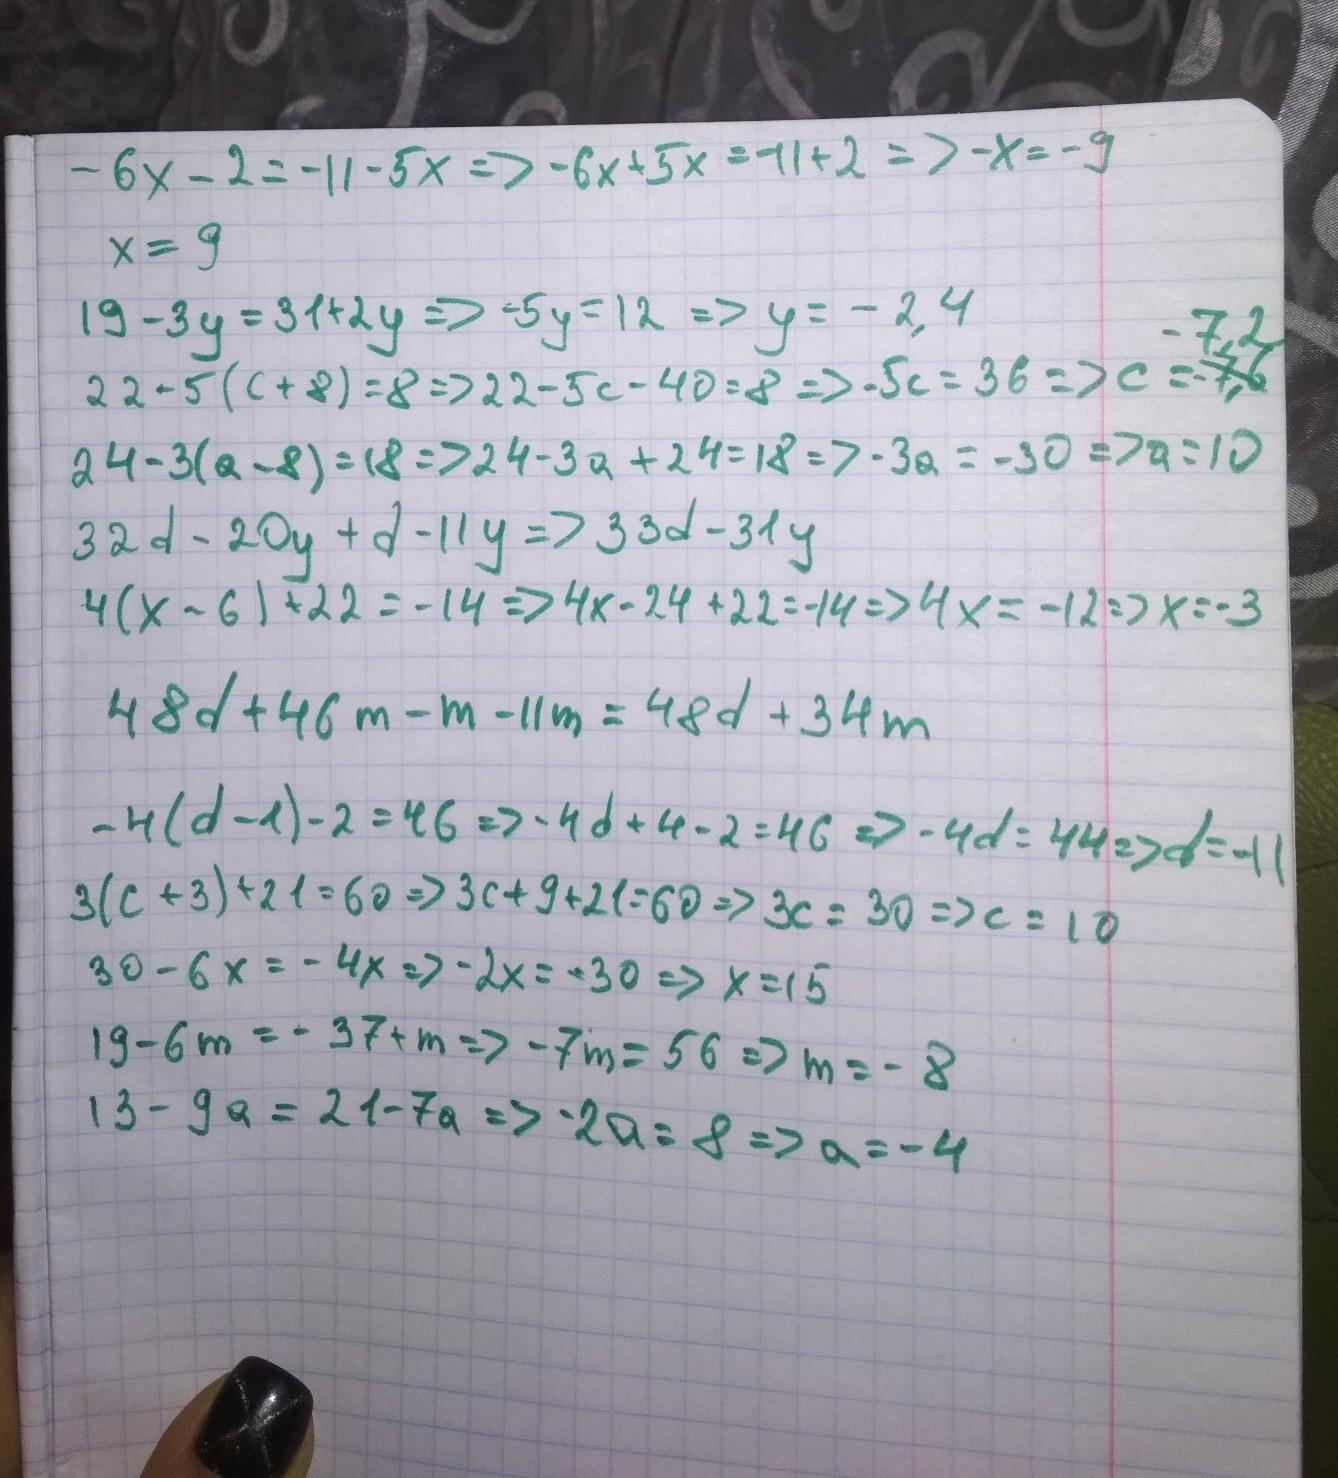 -6x-2=-11-5x=>-6x+5x=-11+2=>-x=-9
x=9
19-3y=31+2y=>-5y=12=>y=-2,4
-7,2
22-5(c+8)=8=>22-5c-40=8=>-5c=36=>c=-7,6
24-3(a-8)=18=>24-3a+24=18=>-3a=-30=>a=10
32d-20y+d-11y=>33d-31y
4(x-6)+22=-14=>4x-24+22=-14=>4x=-12=>x=-3
48d+46m-m-11m=48d+34m
-4(d-1)-2=46=>-4d+4-2=46=>-4d=44=>d=-11
3(c+3)+21=60=>3c+9+21=60=>3c=30=>c=10
30-6x=-4x=>-2x=-30=>x=15
19-6m=-37+m=>-7m=56=>m=-8
13-9a=21-7a=>-2a=8=>a=-4